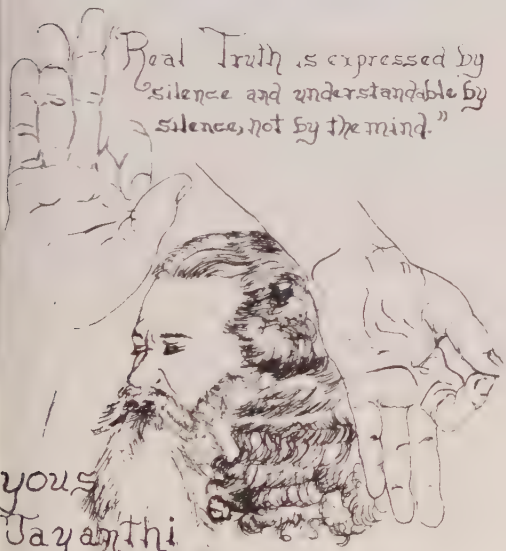 Real Truth is expressed by
silence and understandable by
silence, not by the mind."
yous
Jayanthi